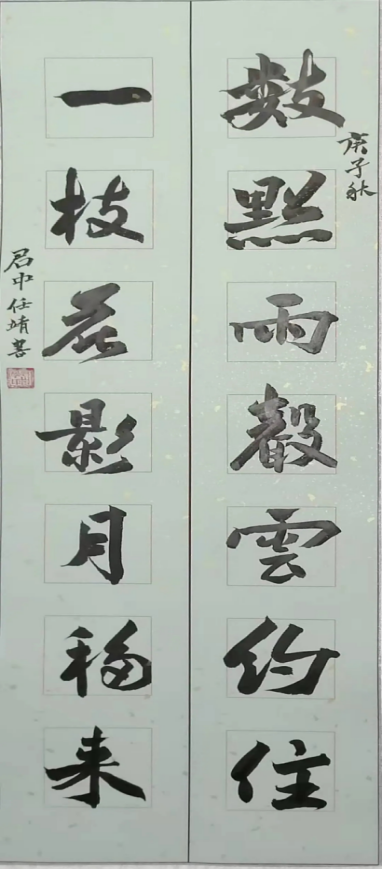 庚子秋
數點雨聲雲約住
一枝花影月移来
中任靖書